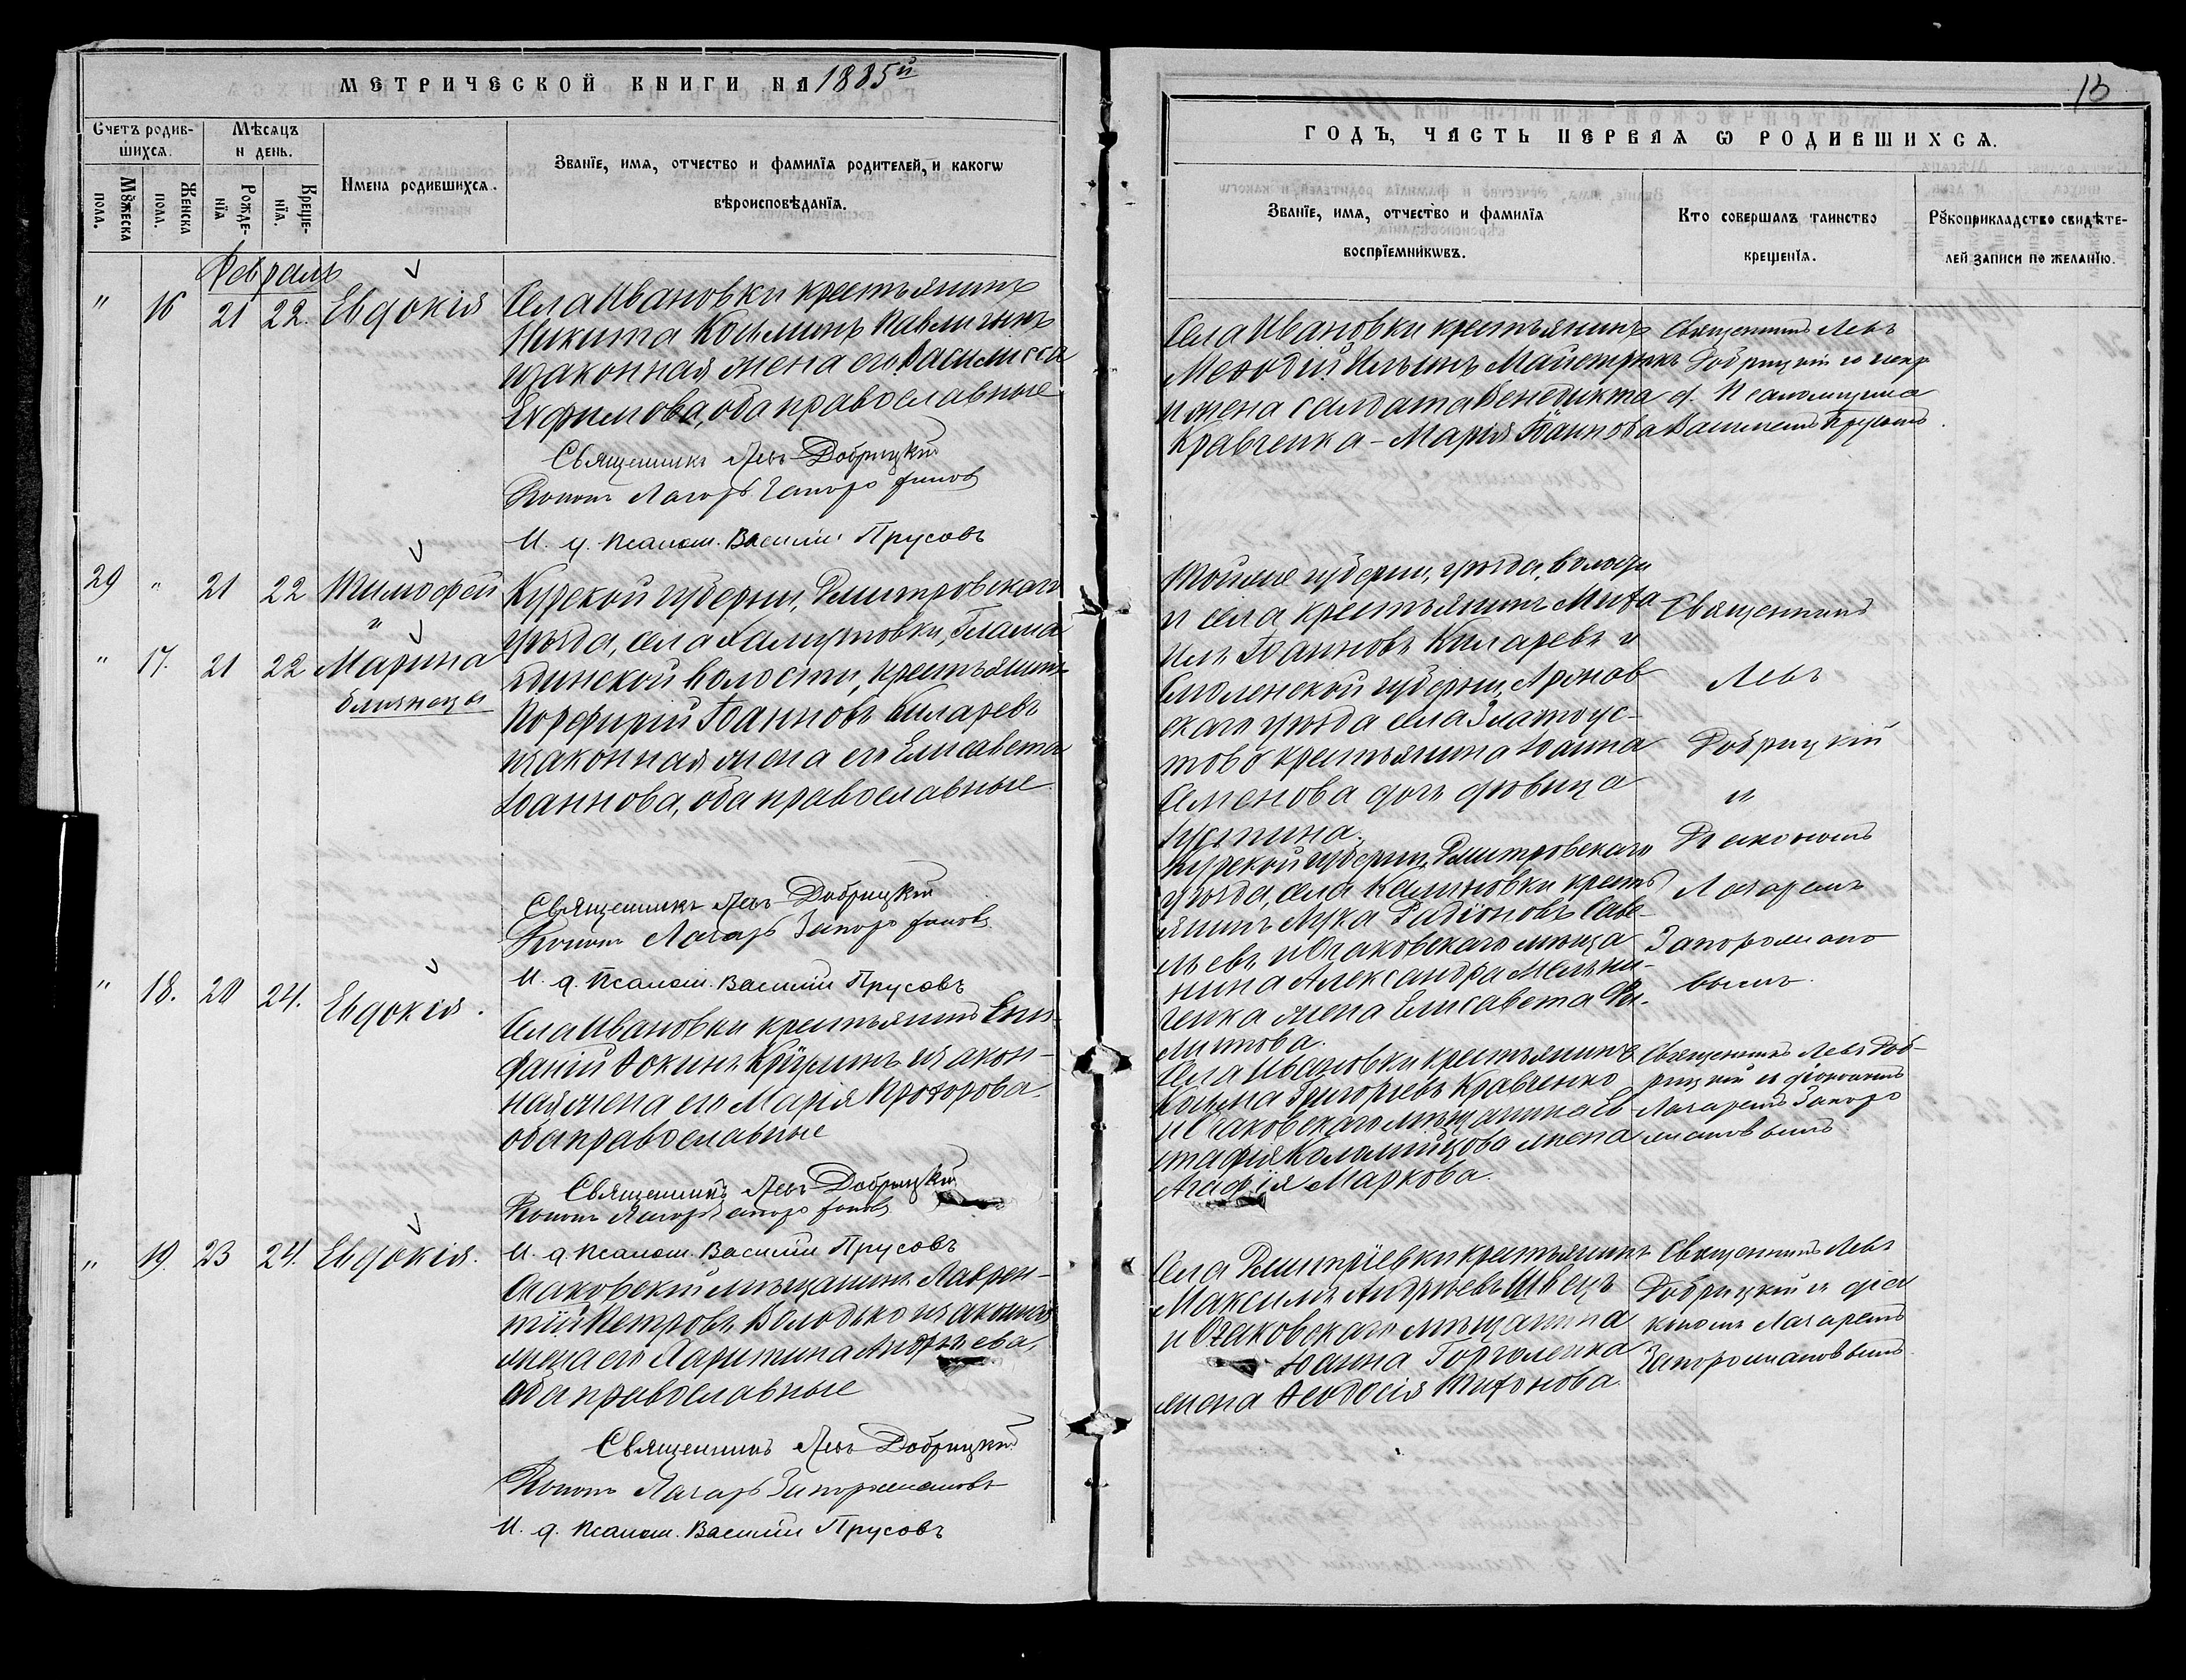 МЕТРИЧЕСКОЙ КНИГИ НА 1885й
Счетъ родив-
шихся.
Мѣсяцъ
и день.
Мꙋжеска
пола.
Женска
пола.
Рожде-
нїя
Креще-
нїя.
Имена родившихся.
Званїе, имя, отчество и фамилїя родителей, и какогѡ
вѣроисповѣданїя.
Февраль
" 16 21 22. Евдокія
Села Ивановки крестьянинъ
Никита Козьминъ Павличукъ
и законная жена его Василисса
Евфимова, оба православные
Священникъ Левъ Добрицкій
Лазарь
И. д. псалом. Василій Прусовъ
29 " 21 22 Тимофей
и
" 17. 21 22 Марина
близнецы
Курской губерніи, Дмитровскаго
уѣзда, села Халиповки,
волости, крестьянинъ
Порфирій Іоанновъ Киларевъ
и законная жена его Елисавета
Іоаннова, оба православные
Священникъ Левъ Добрицкій
Лазарь
И. д. псалом. Василій Прусовъ
" 18. 20 24. Евдокія.
Села Ивановки крестьянинъ Епи-
фаній Ѳокинъ и закон-
ная жена его Марія Прохорова
оба православные
Священникъ Левъ Добрицкій
Лазарь
И. д. псалом. Василій Прусовъ
" 19. 23 24. Евдокія.
Очаковскій мѣщанинъ Лаврен-
тій Петровъ Володько и законная
жена его Харитина Андреева,
оба православные
Священникъ Левъ Добрицкій
Лазарь Запорожановъ
И. д. псалом. Василій Прусовъ
ГОДЪ, ЧАСТЬ ПЕРВАЯ Ѡ РОДИВШИХСЯ.
Званїе, имя, отчество и фамилїя
воспрїемникѡвъ.
Кто совершалъ таинство
крещенїя.
Рꙋкоприкладство свидѣте-
лей записи по желанїю.
Села Ивановки крестьянинъ
Меѳодій Ильинъ Майстрюкъ
и жена солдата Венедикта
Кравченка - Марія Іоаннова
Священникъ Левъ
Добрицкій и испр
д. Псаломщика
Василіемъ Прусовъ
Той же губерніи, уѣзда, волости
и села крестьянинъ Миха
илъ Іоанновъ Киларевъ и
Смоленской губерніи,
скаго уѣзда села Златоус-
тово крестьянина Іоанна
Семенова дочь дѣвица
Курской губерніи, Дмитровскаго
уѣзда, села Халиповки кресть
янинъ Лука Радіоновъ Саве-
льевъ и Очаковскаго мѣща
нина Александра Мельни-
ченка жена Елисавета Фи-
липова.
Священникъ
Левъ
Добрицкій
и
Діакономъ
Лазаремъ
Запорожано
вымъ.
Села Ивановки крестьянинъ
Козьма Григорьевъ Кравченко
и Очаковскаго мѣщанина Ев
стафія Коломійцова жена
Агафія Маркова.
Священникъ Левъ Доб-
рицкій и діакономъ
Лазаремъ Запоро
жановымъ
Села Дмитріевки крестьянинъ
Максимъ Андреевъ Швецъ
и Очаковскаго мѣщанина
Іоанна Горголенка
жена Ѳеодосія Тихонова.
Священникъ Левъ
Добрицкій и діа
кономъ Лазаремъ
Запорожановымъ